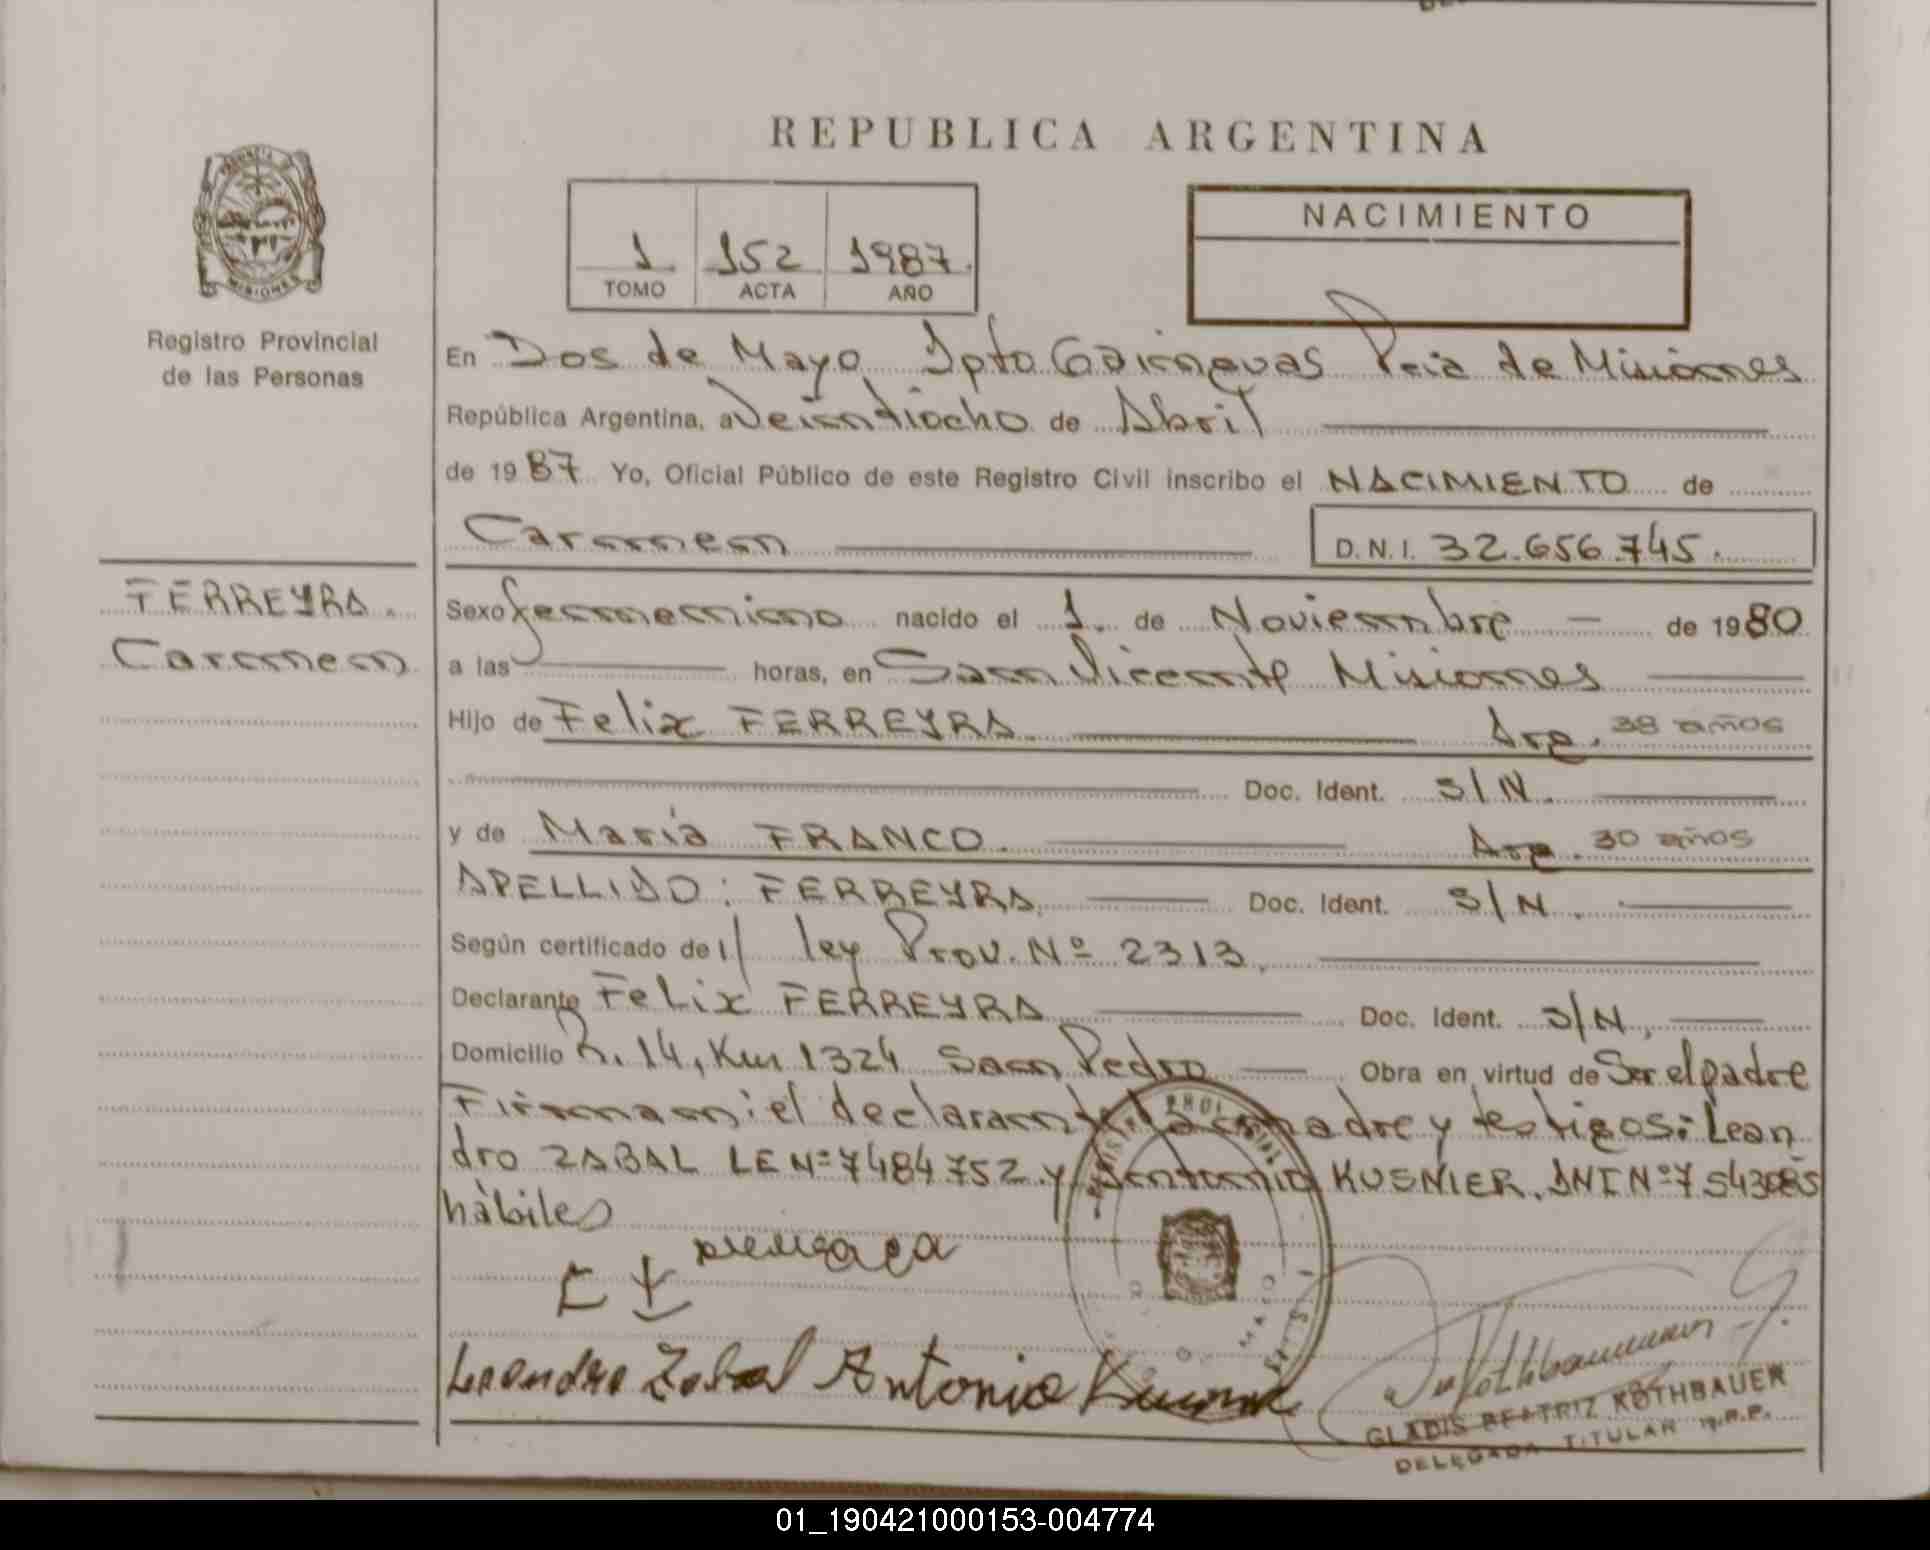 REPUBLICA ARGENTINA
PROVINCIA DE
MISIONES
Registro Provincial
de las Personas
1 152 1987
TOMO ACTA AÑO
NACIMIENTO
En Dos de Mayo, Dpto Gainguas Pcia de Misiones
República Argentina, a Veintiocho de Abril
de 1987 Yo, Oficial Público de este Registro Civil inscribo el NACIMIENTO de
Carmen D.N.I. 32.656.745.
FERREYRA.
Carmen
Sexo femenino nacido el 1. de Noviembre — de 1980
a las horas, en San Vicente Misiones
Hijo de Felix FERREYRA Arg. 38 años
Doc. Ident. S/N.
y de María FRANCO. Arg. 30 años
APELLIDO: FERREYRA. Doc. Ident. S/N.
Según certificado de 1/ ley Prov. Nº 2313.
Declarante Felix FERREYRA Doc. Ident. S/N.
Domicilio R. 14, Km 1324 San Pedro Obra en virtud de Ser el padre
Firman: el declarante la madre y testigos: Lean
dro ZABAL LE Nº 7484752. y Antonio KUSNIER, DNI Nº 7543085
hábiles
Leandro Zabal Antonio
GLADIS BEATRIZ ROTHBAUER
DELEGADA TITULAR R.P.P.
01_190421000153-004774